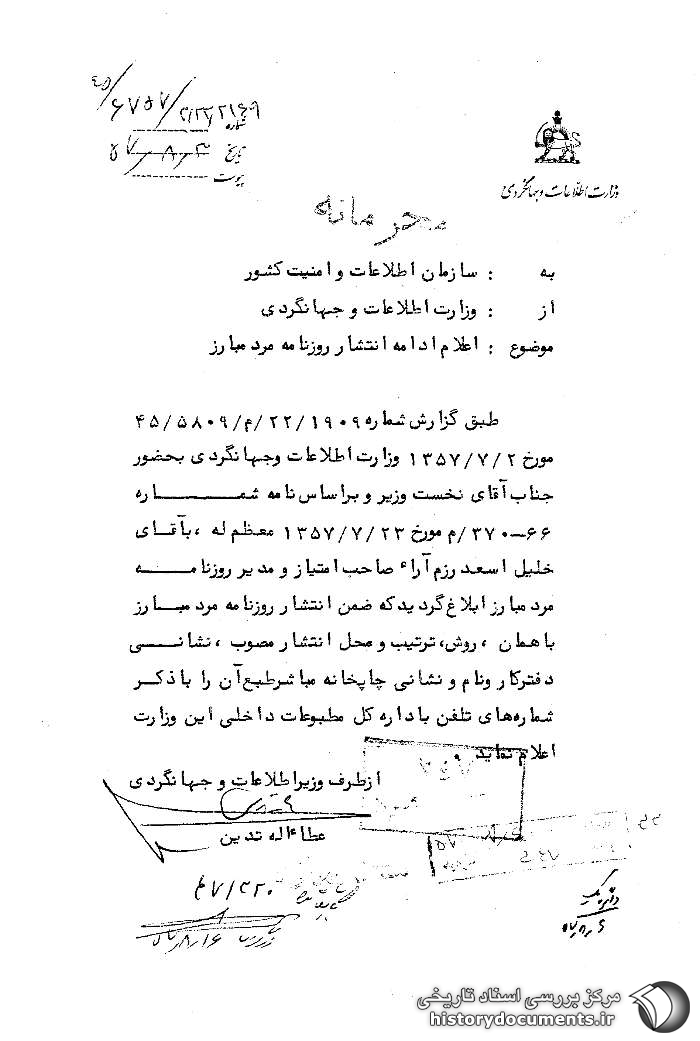 شماره
تاریخ ۵۷ر۸ر۳
پیوست
وزارت اطلاعات و جهانگردی
محرمانه
به : سازمان اطلاعات و امنیت کشور
از : وزارت اطلاعات و جهانگردی
موضوع : اعلام ادامه انتشار روزنامه مرد مبارز
طبق گزارش شماره ۱۹۰۹/۲۲/م/۴۵/۵۸۰۹
مورخ ۱۳۵۷/۷/۲ وزارت اطلاعات وجهانگردی بحضور
جناب آقای نخست وزیر و براساس نامه شمـــــــاره
۶۶–۳۷۰/م مورخ ۱۳۵۷/۷/۲۳ معظم له ، بآقـای
خلیل اسعد رزم آراء صاحب امتیاز و مدیر روزنامـــه
مرد مبارز ابلاغ گردید که ضمن انتشار روزنامه مرد مبـارز
با همان ، روش، ترتیب و محل انتشار مصوب ، نشانـــی
دفترکار ونام و نشانی چاپخانه مباشرطبع آن را با ذکـر
شماره‌های تلفن باداره کل مطبوعات داخلی این وزارت
اعلام نماید .
ازطرف وزیراطلاعات و جهانگردی
عطاءاله تدین
مرکز بررسی اسناد تاریخی
historydocuments.ir